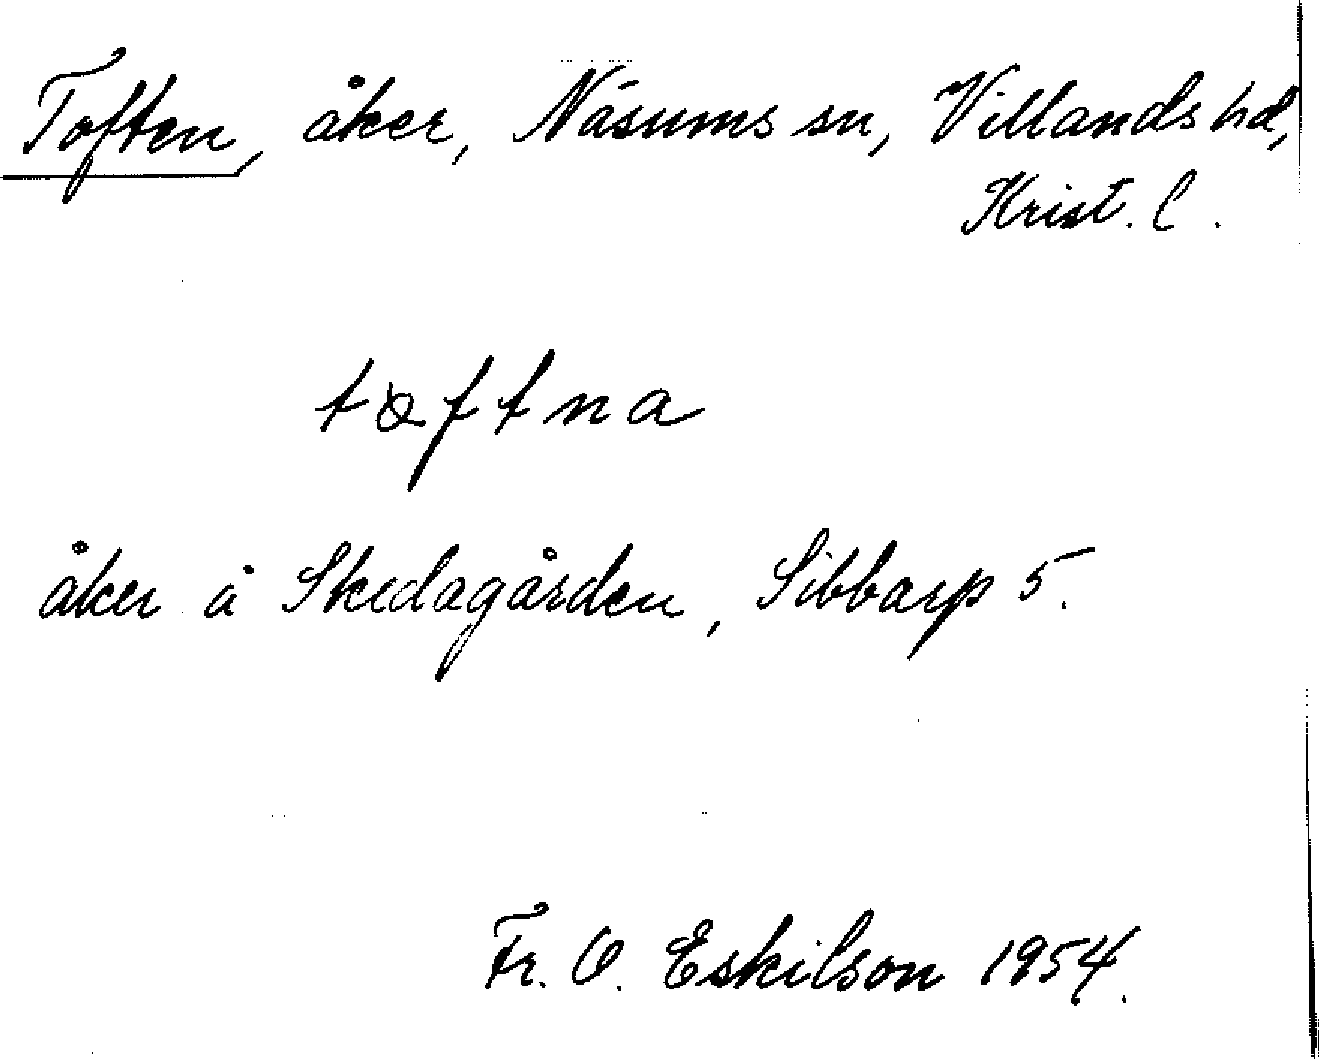 Toften, åker, Näsums sn, Villands hd,
Krist. l.
tɷftna
åker å Skedagården, Sibbarp 5.
Fr. O. Eskilson 1954.